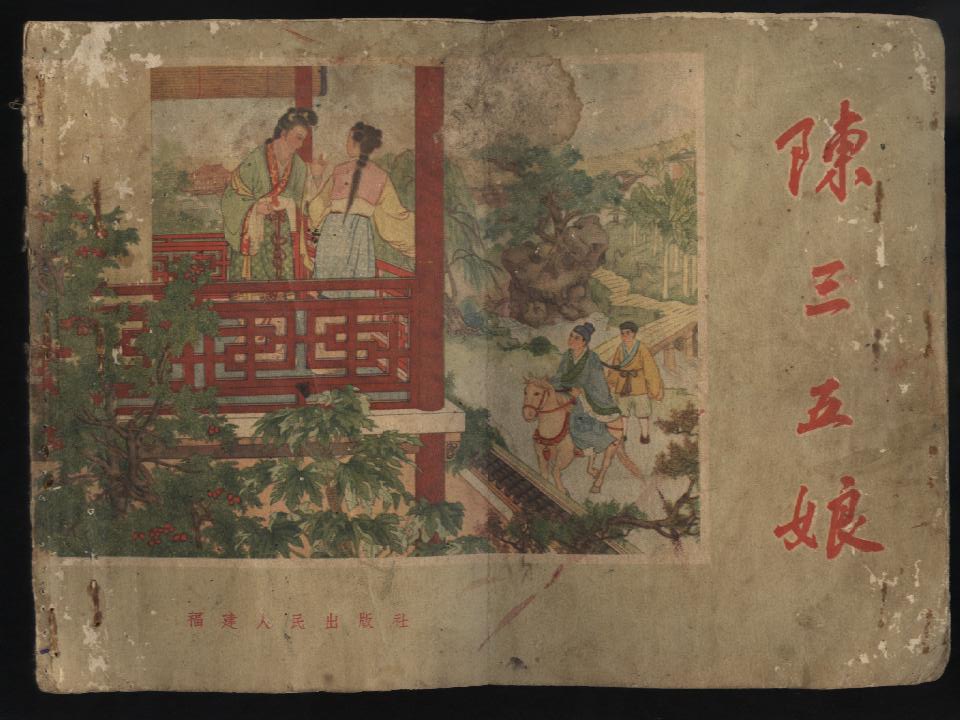 陳三五娘
福建人民出版社